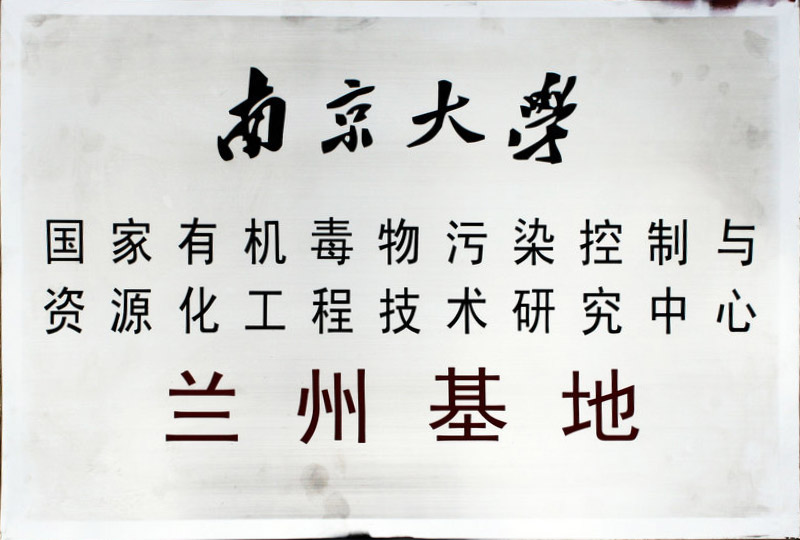 南京大學
国家有机毒物污染控制与
资源化工程技术研究中心
兰州基地